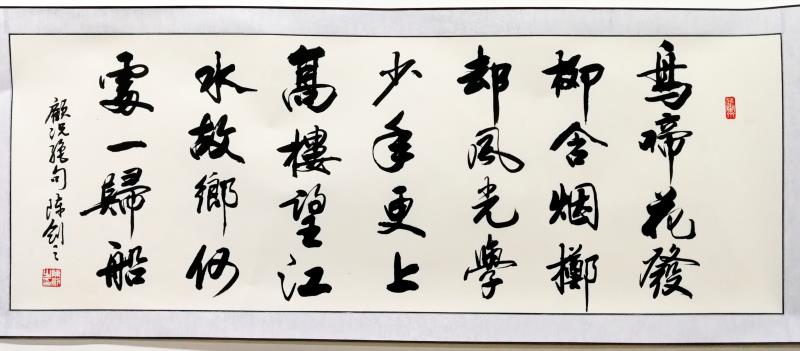 鳥啼花發
柳含烟擲
却風光學
少年更上
高樓望江
水故鄉何
處一歸船
顧况絕句 陈